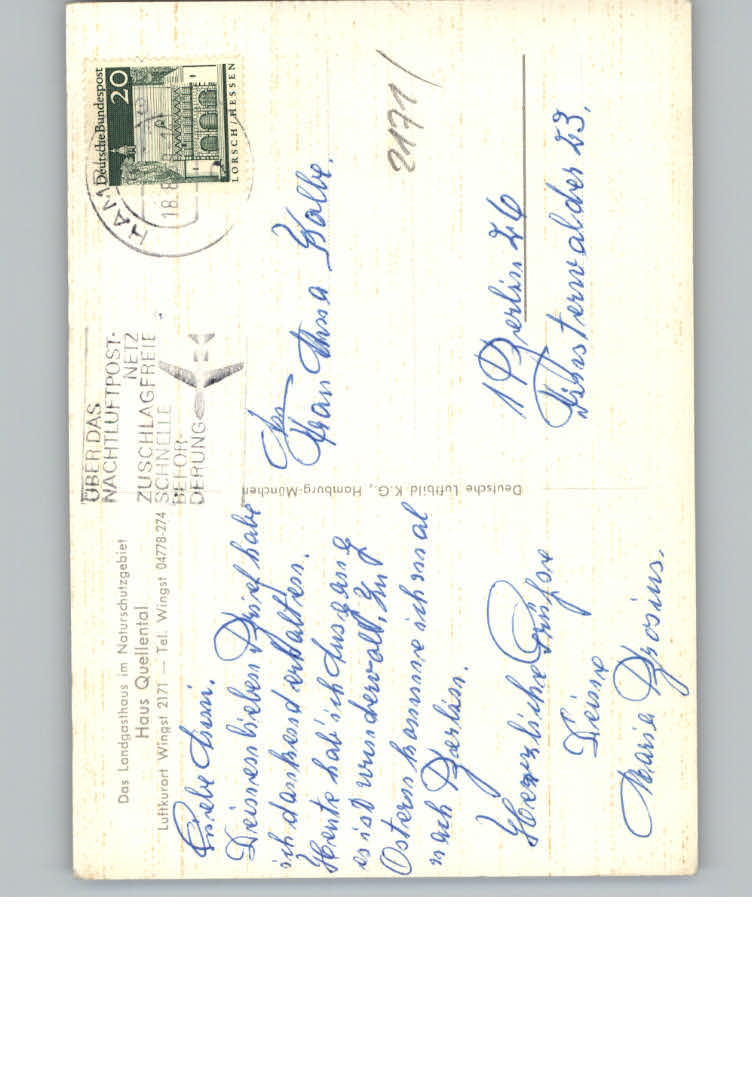 Das Landgasthaus im Naturschutzgebiet
Haus Quellental
Luftkurort Wingst 2171 — Tel. Wingst 04778-274
Liebe Anni.
Deinen lieben Brief habe
ich dankend erhalten.
Heute hab' ich Ausgang
es ist wundervoll. Zu
Ostern komme ich mal
nach Berlin.
Herzliche Grüße
Deine
Maria Brosius.
Deutsche Luftbild K.G., Hamburg-München
ÜBER DAS
NACHTLUFTPOST-
NETZ
ZUSCHLAGFREIE
SCHNELLE
BEFÖR-
DERUNG
HAM
18.8
Deutsche Bundespost
20
LORSCH/HESSEN
Frau Anna Kolbe.
2171/
1 Berlin 26
Finsterwalder 23.